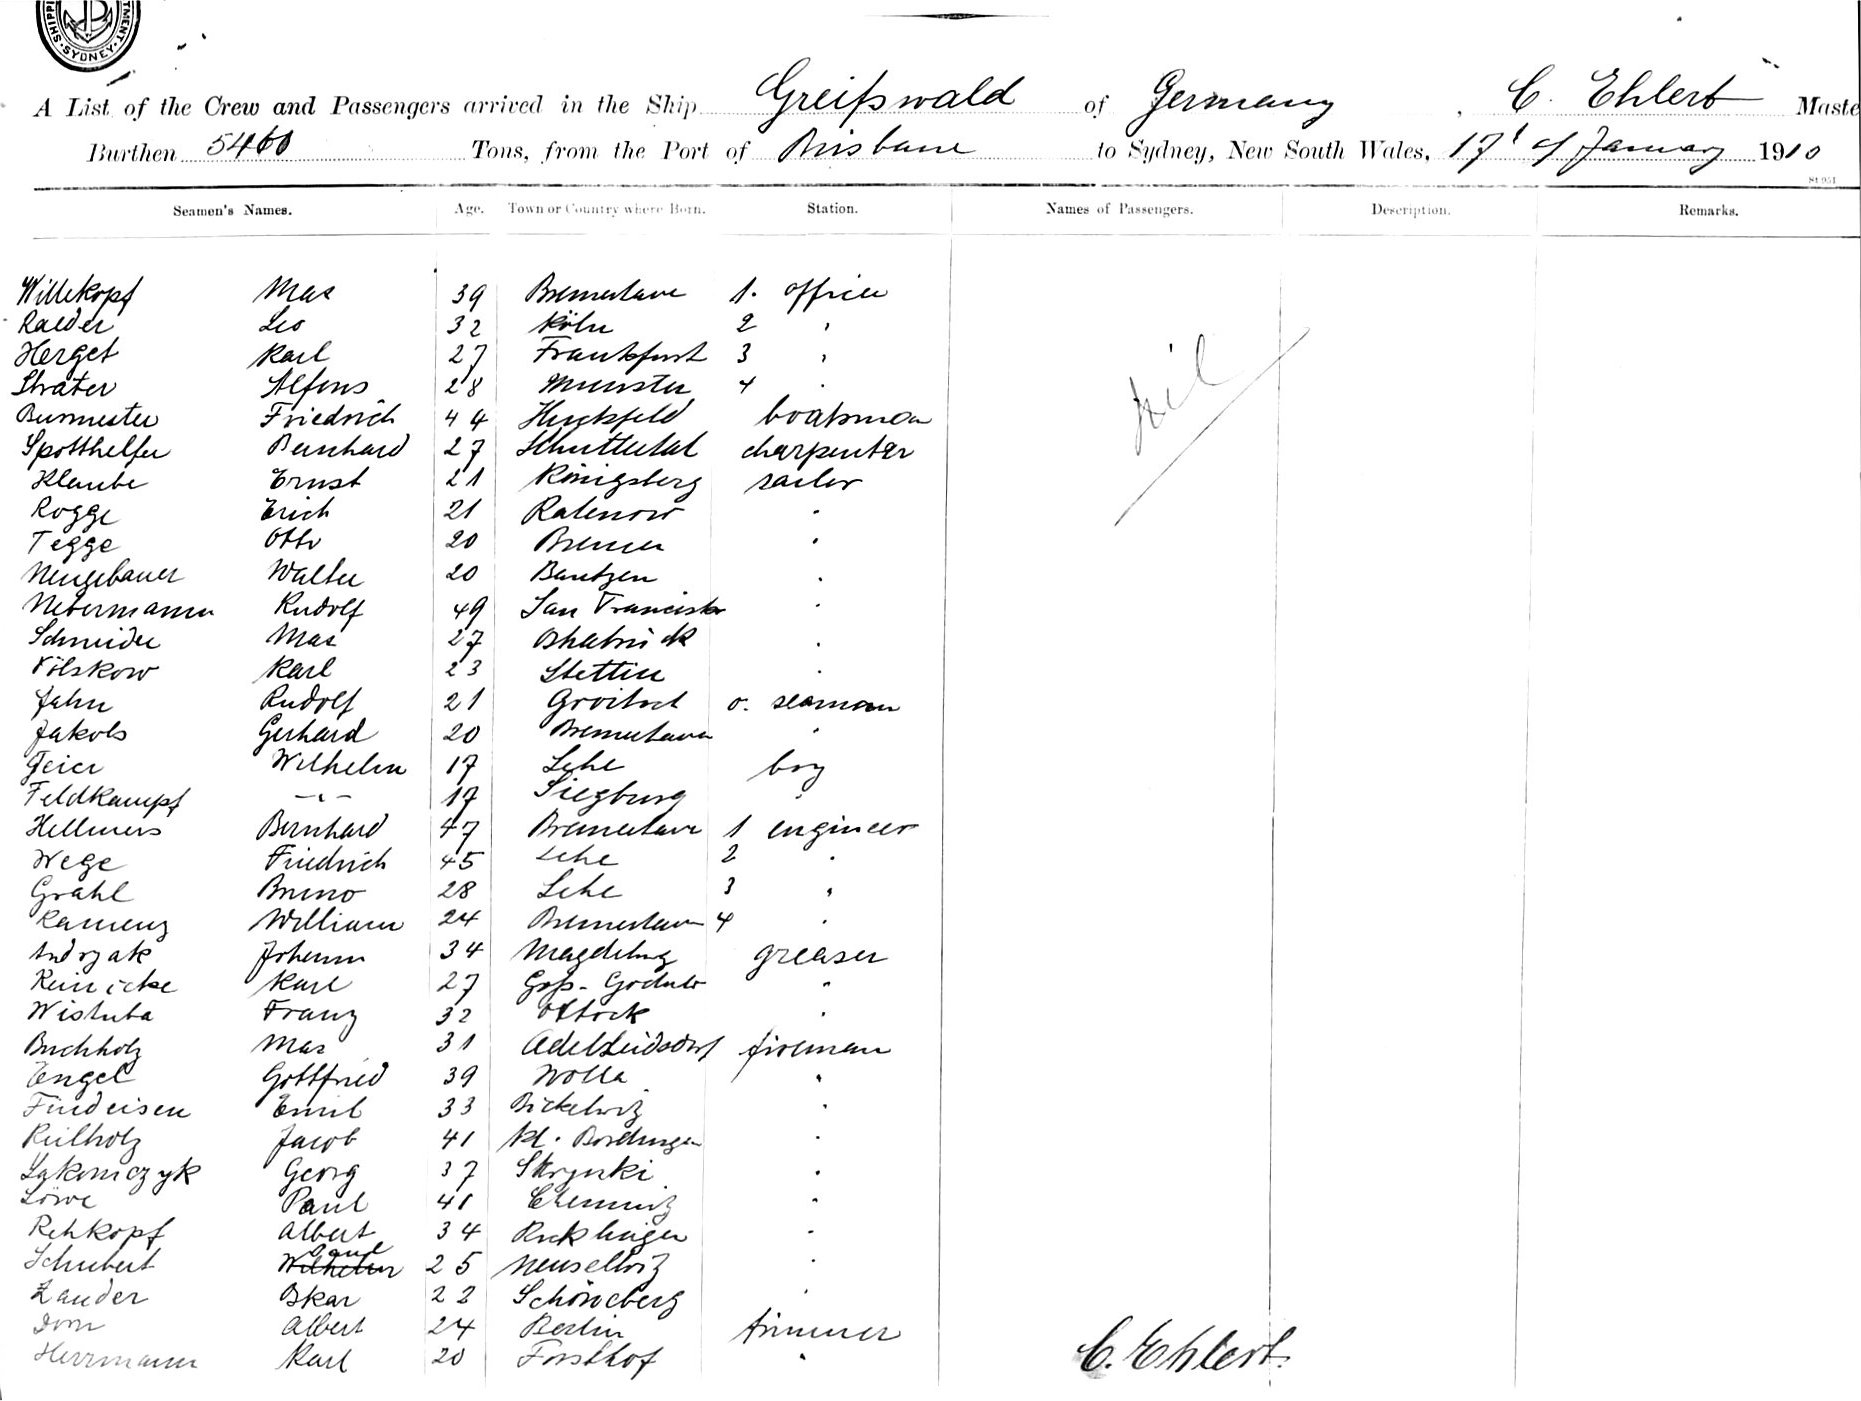 SHIPPI TMENT. SYDNEY.
A List of the Crew and Passengers arrived in the Ship Greifswald of Germany, C. Ehlert Maste
Burthen 5460 Tons, from the Port of Brisbane to Sydney, New South Wales, 17t of January 1910
Seamen's Names. Age. Town or Country where Born. Station. Names of Passengers. Description. Remarks.
Willekopf Max 39 Bremerhave 1. officer
Raeder Leo 32 Köln 2 "
Herget Karl 27 Frankfurt 3 "
Sträter Alfons 28 Munster 4 "
Burmester Friedrich 44 boatsman
Spotthelfer Bernhard 27 Schuttertal charpenter
Klaube Ernst 21 Königsberg sailor
Rogge Erich 21 Ratenow "
Tegge Otto 20 Bremen "
Neugebauer Walter 20 Bautzen "
Nebermann Rudolf 49 San Francisko "
Schneider Max 27 Osnabrück "
Völskow Karl 23 Stettin "
Jahn Rudolf 21 Groitsch o. seaman
Jakobs Gerhard 20 Bremerhaven "
Feier Wilhelm 17 Lehe boy
Feldkampf -"- 17 Siegburg "
Hellmers Bernhard 47 Bremerhave 1 engineer
Wege Friedrich 45 Lehe 2 "
Grahl Bruno 28 Lehe 3 "
Kamenz William 24 Bremerhaven 4 "
Andrzak Johann 34 Magdeburg greaser
Reinicke Karl 27 "
Wistuba Franz 32 Ottock "
Buchholz Max 31 Adelheidsdorf fireman
Engel Gottfried 39 Wolla "
Findeisen Emil 33 "
Reilholz Jacob 41 "
Lakomczyk Georg 37 "
Löwe Paul 41 Chemnitz "
Rehkopf Albert 34 Ricklingen "
Schubert Wilhelm Paul 25 Meuselwiz "
Zander Oskar 22 Schöneberg "
Dorn Albert 24 Berlin trimmer
Herrmann Karl 20 Forsthof "
Nil
C. Ehlert.